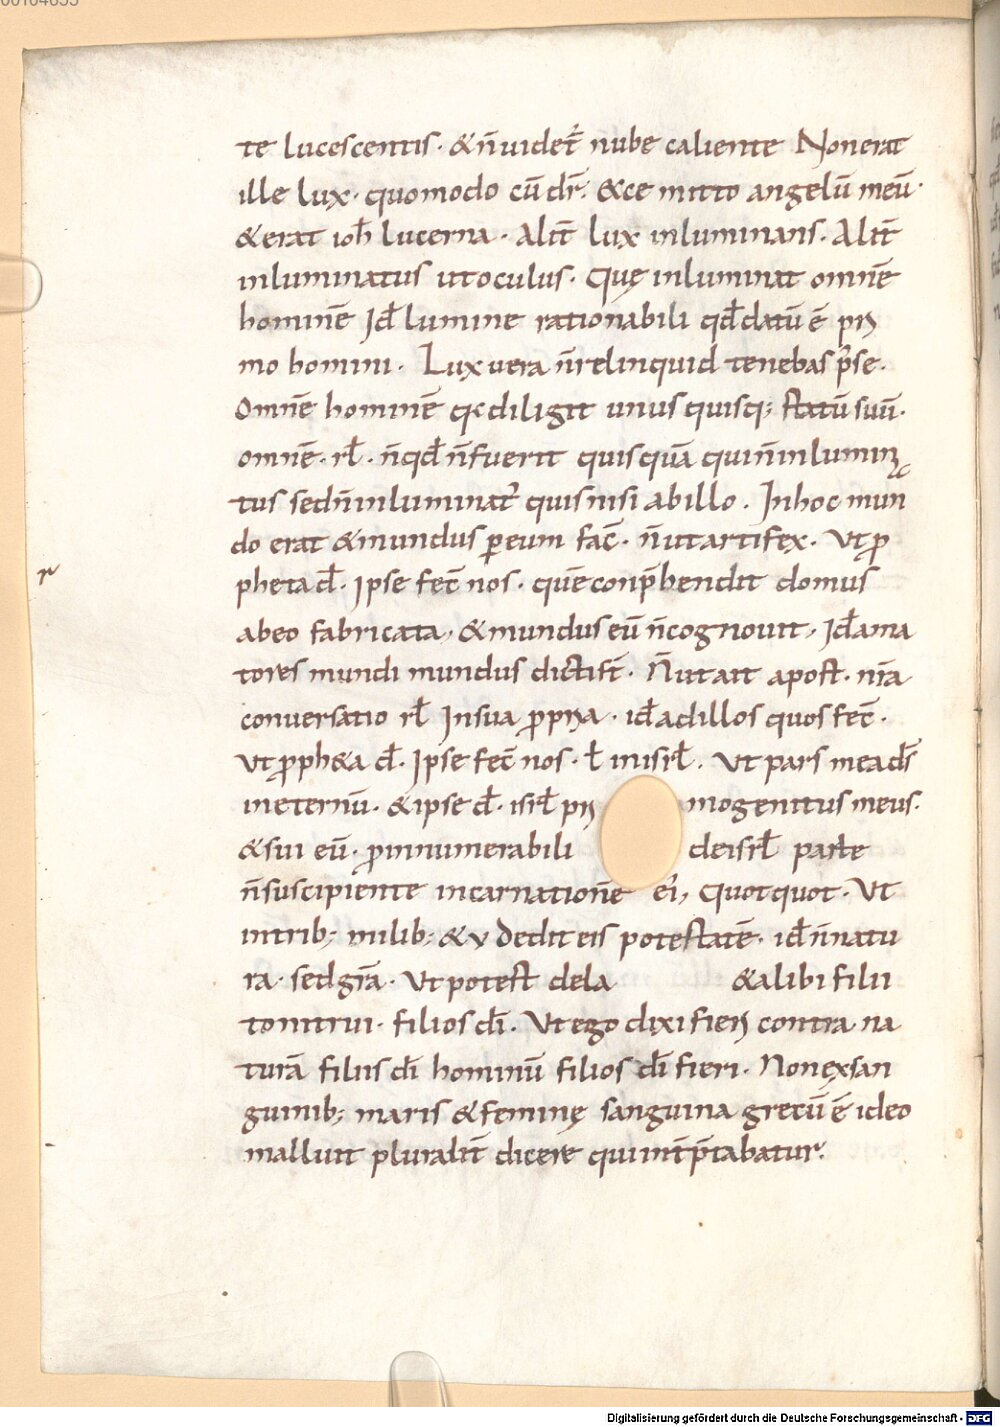 00104655
te lucescentis· &n̄uidet̄ nube caliente Nonerat
ille lux· quomodo cū dr̄· &ce mitto angelū meū·
&erat ioh̄ lucerna· Alit̄ lux inluminans· Alit̄
inluminatus utoculus· Quę inluminat omnē
hominē Id̄ lumine rationabili qd̄datū ē pri
mo homini· Lux vera n̄relinquid tenebras p̄se·
Omnē hominē q diligit unus quisq; statū suū·
omnē· rl̄· n̄qd̄ n̄fuerit quis quā quin̄inlumina
tus sedn̄inluminat᷑ quisnisi abillo· Inhoc mun
do erat &mundus ꝑeum fac̄· n̄utartifex· Utꝓ
pheta d̄· Ipse fec̄ nos· quēconp̄hendit domus
abeo fabricata, &mundus eū n̄cognouit, Id̄ama
tores mundi mundus dict᷑ · N̄utait apost· nr̄a
conuersatio rl̄ Insua ꝓpria· id̄adillos quos fec̄·
Ut ꝓph&a d̄· Ipse fec̄ nos· l̄ inisrl̄· Ut pars mea dn̄s
ineternū· &ipse d̄· isrl̄ pri mogenitus meus·
&sui eū· ꝓinnumerabili deisrl̄ parte
n̄suscipiente incarnationē ei᷑, Quotquot· Ut
intrib; milib; &v dedit eis potestatē· id̄ n̄natu
ra· sedgr̄a· Ut potest dela &alibi filii
tonitrui· filios dī· Ut ego dixi fieri contra na
turā filus dī hominū filios dī fieri· Non ęxsan
guinib; maris &feminę sanguina grecū ē ideo
malluit pluralit̄ dicere quiint̄p̄tabatur·
Digitalisierung gefördert durch die Deutsche Forschungsgemeinschaft - DFG